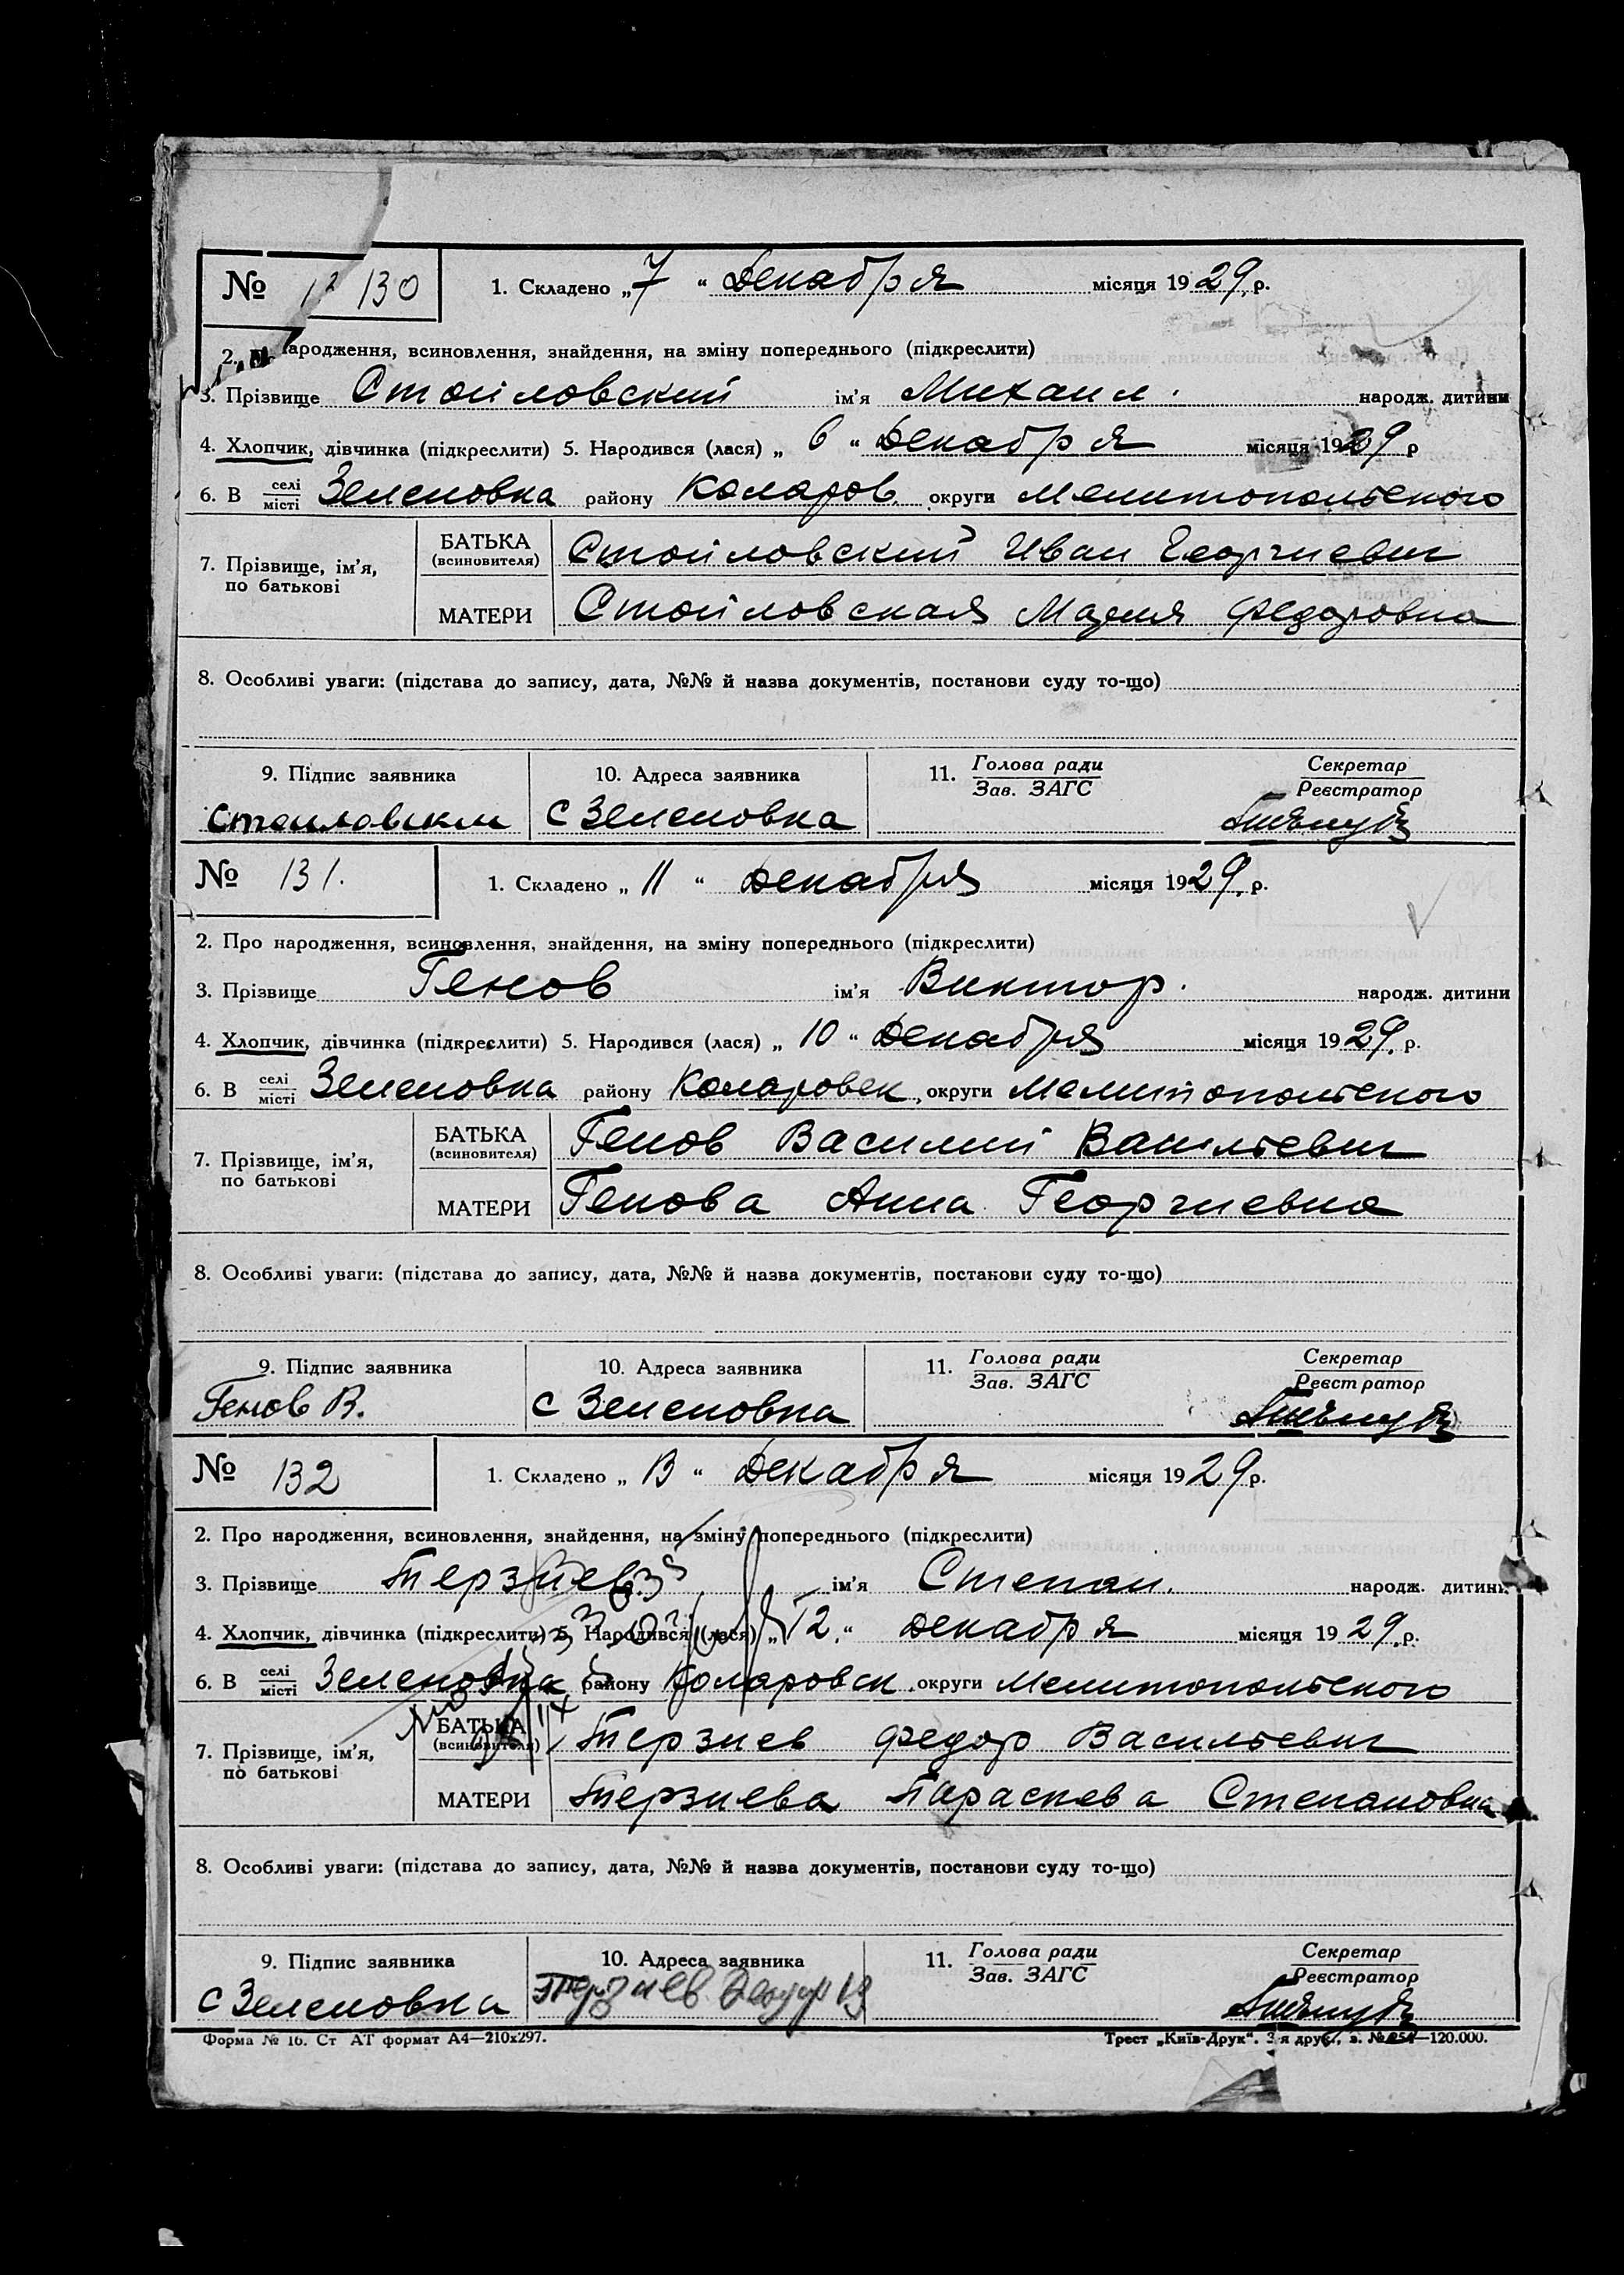 № 130 1. Складено „7“ Декабря місяця 1929 р.
2. ародження, всиновлення, знайдення, на зміну попереднього (підкреслити)
3. Прізвище Стоиловский ім’я Михаил. народж. дитини
4. Хлопчик, дівчинка (підкреслити) 5. Народився (лася) „6“ Декабря місяця 1929 р
6. В селі місті Зеленовка району Коларов. округи Мелитопольского
7. Прізвище, ім’я, по батькові БАТЬКА (всиновителя) Стоиловский Иван Георгиевич
МАТЕРИ Стоиловская Мария Федоровна
8. Особливі уваги: (підстава до запису, дата, №№ й назва документів, постанови суду то-що)
9. Підпис заявника 10. Адреса заявника 11. Голова ради Зав. ЗАГС Секретар Реєстратор
с Зеленовка
№ 131. 1. Складено „11“ Декабря місяця 1929. р.
2. Про народження, всиновлення, знайдення, на зміну попереднього (підкреслити)
3. Прізвище Генов ім’я Виктор. народж. дитини
4. Хлопчик, дівчинка (підкреслити) 5. Народився (лася) „10“ Декабря місяця 1929. р.
6. В селі місті Зеленовка району Коларовск, округи Мелитопольского
7. Прізвище, ім’я, по батькові БАТЬКА (всиновителя) Генов Василий Васильевич
МАТЕРИ Генова Анна Георгиевна
8. Особливі уваги: (підстава до запису, дата, №№ й назва документів, постанови суду то-що)
9. Підпис заявника 10. Адреса заявника 11. Голова ради Зав. ЗАГС Секретар Реєстратор
Генов В. с Зеленовка
№ 132 1. Складено „13“ Декабря місяця 1929 р.
2. Про народження, всиновлення, знайдення, на зміну попереднього (підкреслити)
3. Прізвище Терзиев ім’я Степан. народж. дитини
4. Хлопчик, дівчинка (підкреслити) 5. Народився (лася) „12.“ Декабря місяця 1929. р.
6. В селі місті Зеленовка району Коларовск. округи Мелитопольского
7. Прізвище, ім’я, по батькові БАТЬКА (всиновителя) Терзиев Федор Васильевич
МАТЕРИ Терзиева Параскева Степановна
8. Особливі уваги: (підстава до запису, дата, №№ й назва документів, постанови суду то-що)
9. Підпис заявника 10. Адреса заявника 11. Голова ради Зав. ЗАГС Секретар Реєстратор
с Зеленовка Терзиев
Форма № 16. Ст АТ формат А4—210х297. Трест „Київ-Друк“. 120.000.